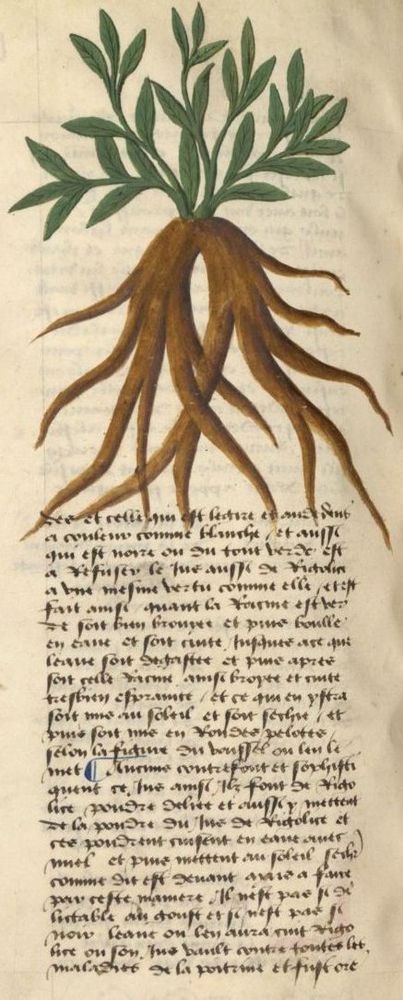 des et celle qui est legiere et audedens
a couleur comme blanche / et aussi
qui est noire ou du tout verde est
a Refuser le Jus aussi de Rigolice
a vne mesme vertu comme elle / et est
fait ainsi quant la Racine est ver
de soit bien broyee et puis boulle
en eaue et soit cuite Jusques ace que
leaue soit degastee et puis apres
soit celle racine ainsi broyee et cuite
tresbien esprainte / et ce qui en ystra
soit mis au soleil et soit sechie / et
puis soit mis en Rondes pelotes
selon la figure du vaissel ou len le
met ¶ Aucuns contrefont et sophisti
quent ce Jus ainsi Ilz font de Rigo
lice pouldre deliee et aussi y mettent
de la pouldre du Jus de Rigolice et
ces pouldrent cuisent en eaue auec
miel et puis mettent au soleil sechr
comme dit est deuant mais a faire
par ceste maniere Il nest pas si de
lictable au goust et si nest pas si
noir leaue ou len aura cuit Rigo
lice ou son Jus vault contre toutes les
maladies de la poitrine et fust ore